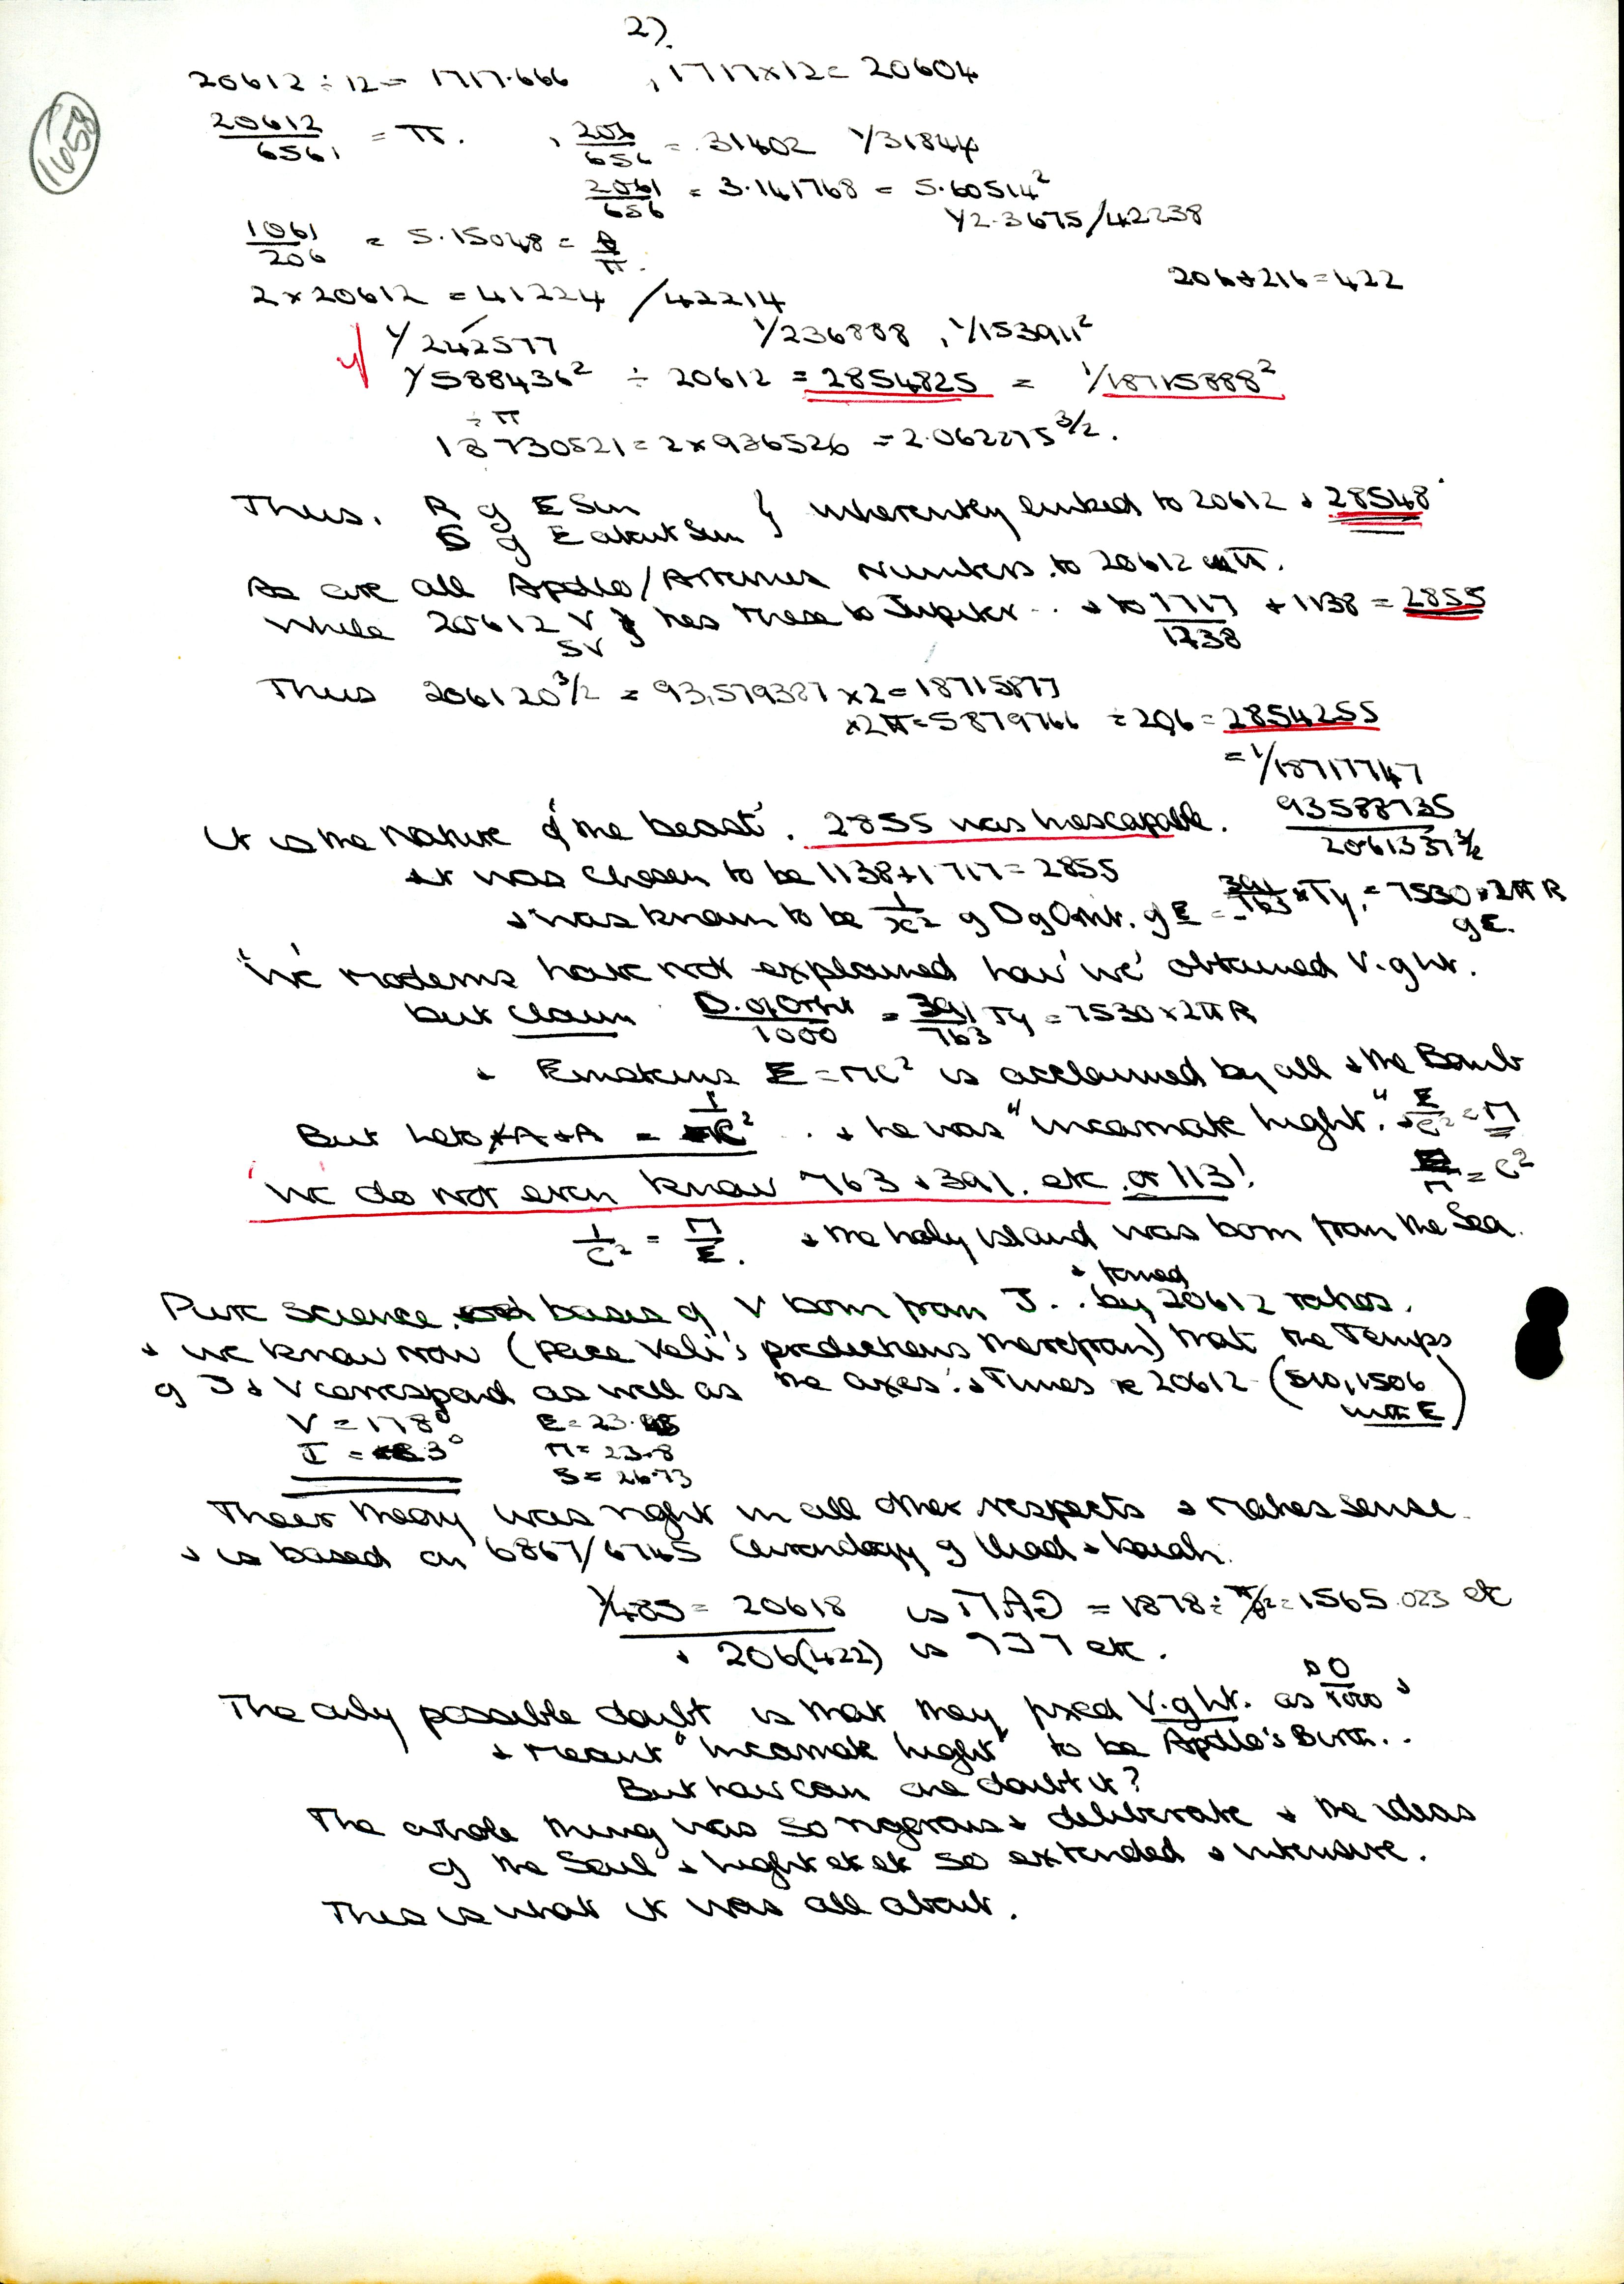 2).
1658
20612 ÷ 12 = 1717.666 , 1717x12= 20604
20612/6561 = π. , 206/656 = .31402 1/31844
2061/656 = 3.141768 = 5.60514²
1/2.3675/42238
1061/206 = 5.15048 =
206+216=422
2x20612 = 41224 /42214
1/242577 1/236888 , 1/153911²
1/588436² ÷ 20612 = 2854825 = 1/18715888²
÷ π
18730521 = 2x936526 = 2.062275 3/2.
Thus. R g E Sun } inherently linked to 20612 + 28548
g E about Sun
As are all Apollo/Artemis Numbers. to 20612 π.
While 20612 V has these to Jupiter .. + to 1717 + 1138 = 2855
5V 1238
Thus 206120 3/2 = 93,579387 x2= 18715877
x2π=5879766 ÷ 206 = 2854255
= 1/18717747
93588735
It is the Nature of 'the beast'. 2855 was inescapable.
2061337 3/2
It was chosen to be 1138+1717=2855
+ was known to be 1/x² g D g Orbit. g E = 391/763 x Ty. = 7530 x 2π R
g E.
'We' moderns have not explained how 'we' obtained V. g ht.
but claim D. of Orbit/1000 = 391/763 Ty = 7530 x 2π R
+ Einsteins E = MC² is acclaimed by all + the Bomb
But Leto + A + A = 1/C² . . + he was "incarnate light". + E/C² = M
E/M = C²
'We do not even know 763 + 391. etc or 113!
1/C² = M/E. + the holy island was born from the Sea.
+ formed
Pure Science. basis g V born from J. . by 20612 ratios.
+ we know now (Pace Veli's predictions therefrom) that the Temps
g J + V correspond as well as the axes. + Times re 20612 (510,1506
E)
V = 178° E = 23.45
J = 3° M = 23.8
S = 26.73
Their theory was right in all other respects + makes sense.
+ is based on 6867/6745 Chronology g Iliad +
1/485 = 20618 is = 1878 ÷ = 1565.023 etc
+ 206(422) is 737 etc.
The only possible doubt is that they fixed V. g ht. as D/1000 +
+ meant "incarnate light" to be Apollo's Birth..
But how can one doubt it?
The whole thing was so rigorous + deliberate + the ideas
g the Soul + light etc etc so extended + intensive.
This is what it was all about.